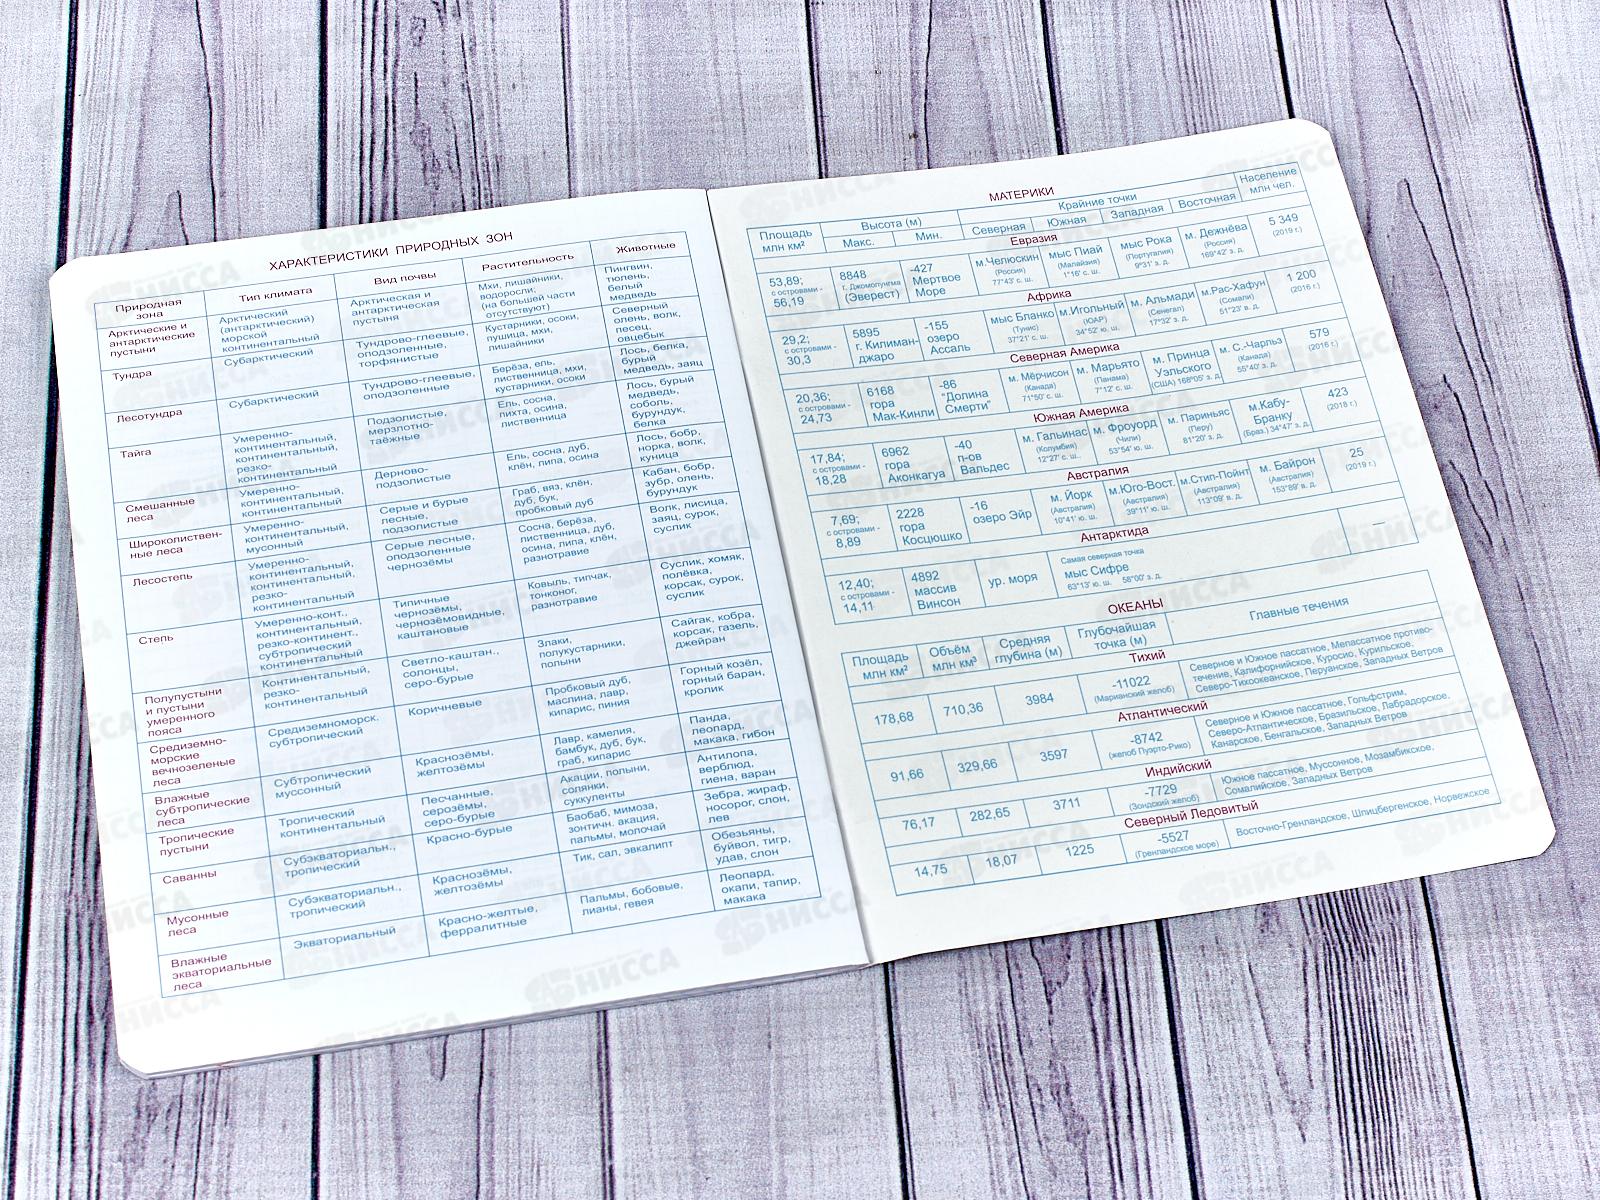 ХАРАКТЕРИСТИКИ ПРИРОДНЫХ ЗОН
Природная зона
Тип климата
Вид почвы
Растительность
Животные
Арктические и антарктические пустыни
Арктический (антарктический) морской континентальный
Арктическая и антарктическая пустыня
Мхи, лишайники, водоросли, (на большей части отсутствуют)
Пингвин, тюлень, белый медведь
Тундра
Субарктический
Тундрово-глеевые, оподзоленные, торфянистые
Кустарники, осоки, пушица, мхи, лишайники
Северный олень, волк, песец, овцебык
Лесотундра
Субарктический
Тундрово-глеевые, оподзоленные
Берёза, ель, лиственница, мхи, кустарники, осоки
Лось, белка, бурый медведь, заяц
Тайга
Умеренно-континентальный, континентальный, резко-континентальный
Подзолистые, мерзлотно-таёжные
Ель, сосна, пихта, осина, лиственница
Лось, бурый медведь, соболь, бурундук, белка
Смешанные леса
Умеренно-континентальный, континентальный
Дерново-подзолистые
Ель, сосна, дуб, клён, липа, осина
Лось, бобр, норка, волк, куница
Широколиствен-ные леса
Умеренно-континентальный, муссонный
Серые и бурые лесные, подзолистые
Граб, вяз, клён, дуб, бук, пробковый дуб
Кабан, бобр, зубр, олень, бурундук
Лесостепь
Умеренно-континентальный, континентальный, резко-континентальный
Серые лесные, оподзоленные чернозёмы
Сосна, берёза, лиственница, дуб, осина, липа, клён, разнотравие
Волк, лисица, заяц, сурок, суслик
Степь
Умеренно-конт., континентальный, резко-континент., субтропический континентальный
Типичные чернозёмы, чернозёмовидные, каштановые
Ковыль, типчак, тонконог, разнотравие
Суслик, хомяк, полёвка, корсак, сурок, суслик
Полупустыни и пустыни умеренного пояса
Континентальный, резко-континентальный
Светло-каштан., солонцы, серо-бурые
Злаки, полукустарники, полыни
Сайгак, кобра, корсак, газель, джейран
Средиземно-морские вечнозеленые леса
Средиземноморск. субтропический
Коричневые
Пробковый дуб, маслина, лавр, кипарис, пиния
Горный козёл, горный баран, кролик
Влажные субтропические леса
Субтропический муссонный
Краснозёмы, желтозёмы
Лавр, камелия, бамбук, дуб, бук, граб, кипарис
Панда, леопард, макака, гибон
Тропические пустыни
Тропический континентальный
Песчанные, серозёмы, серо-бурые
Акации, полыни, солянки, суккуленты
Антилопа, верблюд, гиена, варан
Саванны
Субэкваториальн., тропический
Красно-бурые
Баобаб, мимоза, зонтичн. акация, пальмы, молочай
Зебра, жираф, носорог, слон, лев
Мусонные леса
Субэкваториальн., тропический
Краснозёмы, желтозёмы
Тик, сал, эвкалипт
Обезьяны, буйвол, тигр, удав, слон
Влажные экваториальные леса
Экваториальный
Красно-желтые, ферралитные
Пальмы, бобовые, лианы, гевея
Леопард, окапи, тапир, макака
МАТЕРИКИ
Площадь млн км²
Высота (м)
Макс.
Мин.
Крайние точки
Северная
Южная
Западная
Восточная
Население млн чел.
Евразия
53,89; с островами - 56,19
8848 г. Джомолунгма (Эверест)
-427 Мертвое Море
м.Челюскин (Россия) 77°43' с. ш.
мыс Пиай (Малайзия) 1°16' с. ш.
мыс Рока (Португалия) 9°31' з. д.
м. Дежнёва (Россия) 169°42' з. д.
5 349 (2019 г.)
Африка
29,2; с островами - 30,3
5895 г. Килиман-джаро
-155 озеро Ассаль
мыс Бланко (Тунис) 37°21' с. ш.
м.Игольный (ЮАР) 34°52' ю. ш.
м. Альмади (Сенегал) 17°32' з. д.
м.Рас-Хафун (Сомали) 51°23' в. д.
1 200 (2016 г.)
Северная Америка
20,36; с островами - 24,73
6168 гора Мак-Кинли
-86 "Долина Смерти"
м. Мёрчисон (Канада) 71°50' с. ш.
м. Марьято (Панама) 7°12' с. ш.
м. Принца Уэльского (США) 168°05' з. д.
м. С.-Чарльз (Канада) 55°40' з. д.
579 (2016 г.)
Южная Америка
17,84; с островами - 18,28
6962 гора Аконкагуа
-40 п-ов Вальдес
м. Гальинас (Колумбия) 12°27' с. ш.
м. Фроуорд (Чили) 53°54' ю. ш.
м. Париньяс (Перу) 81°20' з. д.
м.Кабу-Бранку (Браз.) 34°47' з. д.
423 (2018 г.)
Австралия
7,69; с островами - 8,89
2228 гора Косцюшко
-16 озеро Эйр
м. Йорк (Австралия) 10°41' ю. ш.
м.Юго-Вост. (Австралия) 39°11' ю. ш.
м.Стип-Пойнт (Австралия) 113°09' в. д.
м. Байрон (Австралия) 153°89' в. д.
25 (2019 г.)
Антарктида
12,40; с островами - 14,11
4892 массив Винсон
ур. моря
Самая северная точка
мыс Сифре
63°13' ю. ш. 58°00' з. д.
—
ОКЕАНЫ
Площадь млн км²
Объём млн км³
Средняя глубина (м)
Глубочайшая точка (м)
Главные течения
Тихий
178,68
710,36
3984
-11022 (Марианский желоб)
Северное и Южное пассатное, Межпассатное противо-течение, Калифорнийское, Куросио, Курильское, Северо-Тихоокеанское, Перуанское, Западных Ветров
Атлантический
91,66
329,66
3597
-8742 (желоб Пуэрто-Рико)
Северное и Южное пассатное, Гольфстрим, Северо-Атлантическое, Бразильское, Лабрадорское, Канарское, Бенгальское, Западных Ветров
Индийский
76,17
282,65
3711
-7729 (Зондский желоб)
Южное пассатное, Муссонное, Мозамбикское, Сомалийское, Западных Ветров
Северный Ледовитый
14,75
18,07
1225
-5527 (Гренландское море)
Восточно-Гренландское, Шпицбергенское, Норвежское
НИССА